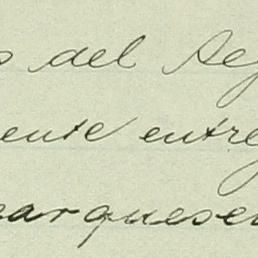 s del
ente entre
arquese